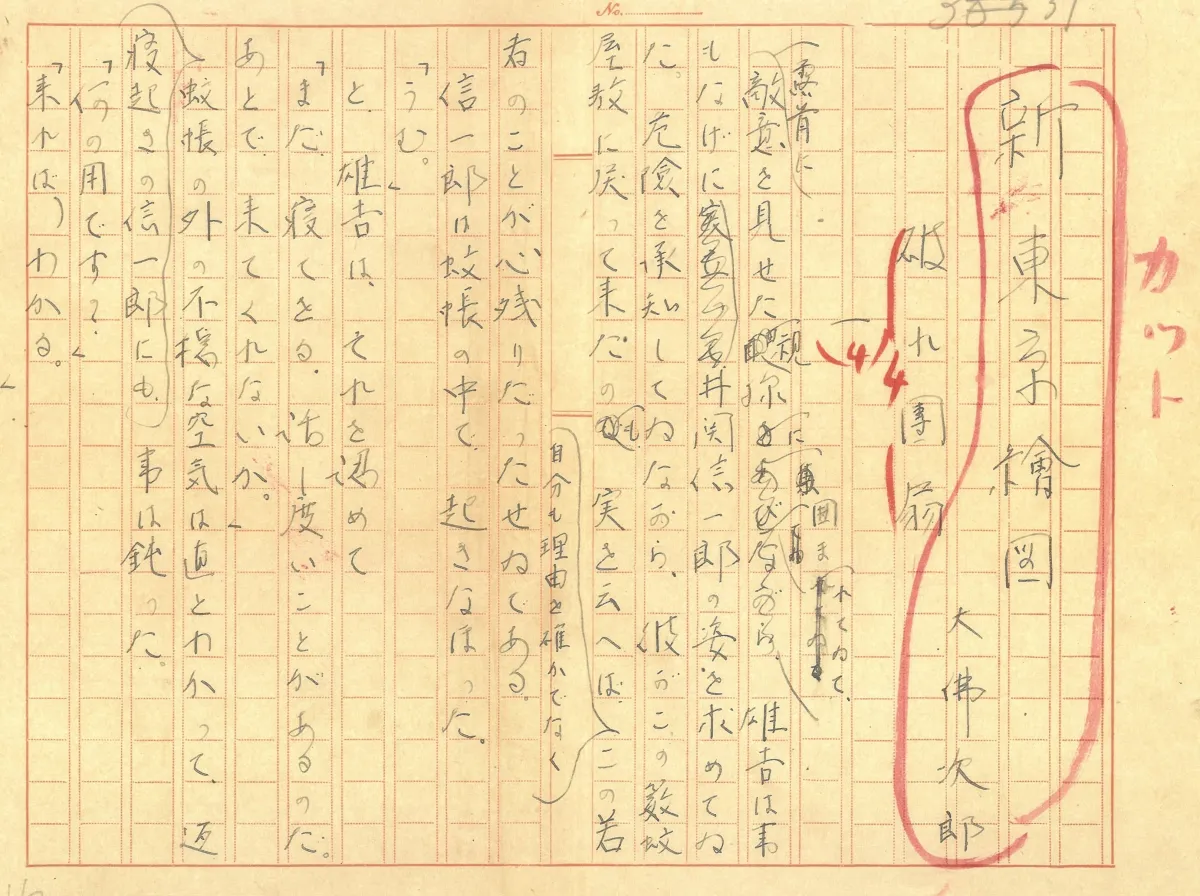 カット
新東京繪図
大佛次郎
破れ團扇
(4) 4
(露骨に
敵意を見せた親に囲まれてゐて、雄吉は事
もなげに井関信一郎の姿を求めてゐ
た。危険を承知してゐながら、彼がこの藪蚊
屋敷に戻って来たのも、実を云へば、この若
自分も理由を確かでなく
者のことが心残りだったせゐである。
信一郎は蚊帳の中で、起きなほった。
「うむ。」
と、雄吉は、それを認めて
「まだ、寝てゐる。話し度いことがあるのだ。
あとで、来てくれないか。」
蚊帳の外の不穏な空気は直とわかって、迫
寝起きの信一郎にも、事は鈍った。
「何の用です?」
「来ればわかる。」
No.